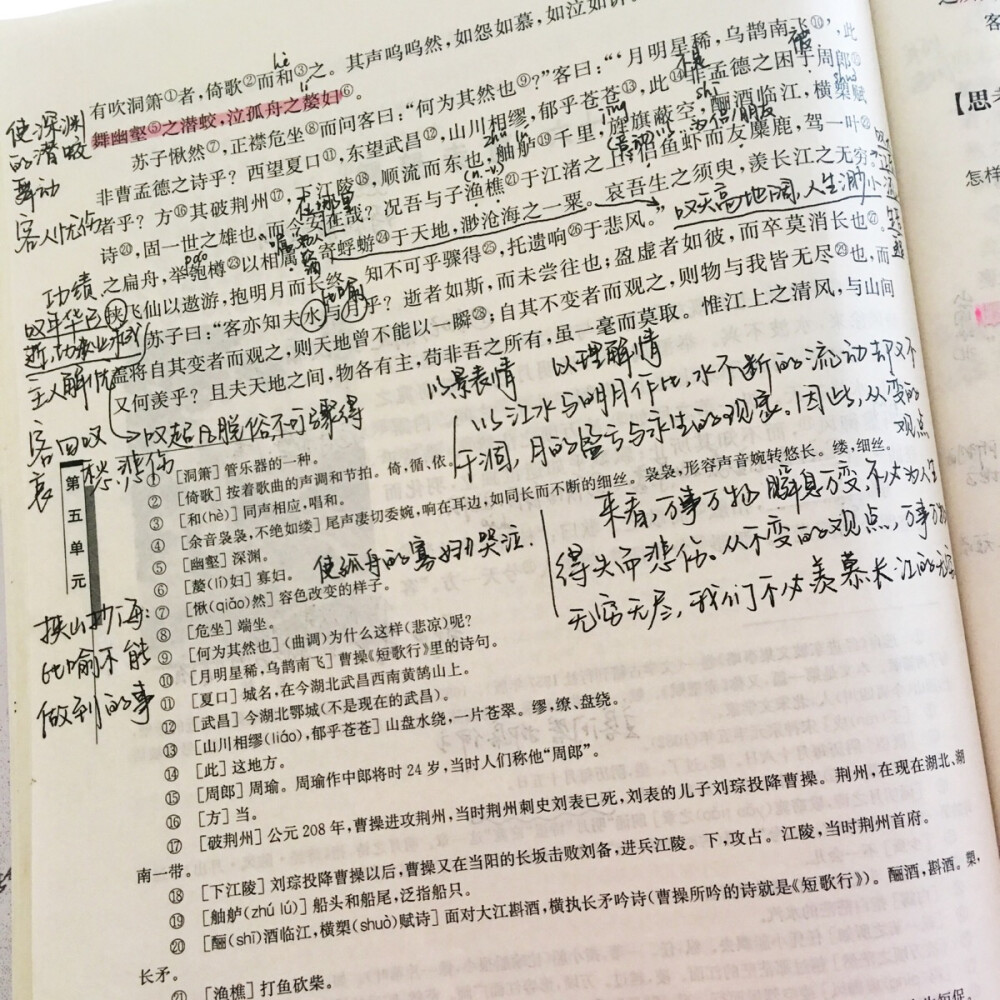 有吹洞箫①者，倚歌②而和③之。其声呜呜然，如怨如慕，如泣如诉
hè
舞幽壑⑤之潜蛟，泣孤舟之嫠妇⑥。
lí
苏子愀然⑦，正襟危坐⑧而问客曰：“何为其然也⑨？”客曰：“‘月明星稀，乌鹊南飞⑩’，此
非曹孟德之诗乎？西望夏口⑪，东望武昌⑫，山川相缪，郁乎苍苍⑬，此⑭非孟德之困于周郎⑮
者乎？方⑯其破荆州⑰，下江陵⑱，顺流而东也，舳舻⑲千里，旌旗蔽空，酾酒临江，横槊赋
诗⑳，固一世之雄也，而今安在哉？况吾与子渔樵㉑于江渚之上，侣鱼虾而友麋鹿，驾一叶㉒
之扁舟，举匏樽㉓以相属。寄蜉蝣㉔于天地，渺沧海之一粟。哀吾生之须臾，羡长江之无穷。
挟飞仙以遨游，抱明月而长终。知不可乎骤得㉕，托遗响㉖于悲风。”
苏子曰：“客亦知夫水与月乎？逝者如斯，而未尝往也；盈虚者如彼，而卒莫消长也㉗。
盖将自其变者而观之，则天地曾不能以一瞬㉘；自其不变者而观之，则物与我皆无尽㉙也，而
又何羡乎？且夫天地之间，物各有主，苟非吾之所有，虽一毫而莫取。惟江上之清风，与山间
被
zhú lú
shī
shuò
páo
在哪里
叹天高地阔，人生渺小
使深渊
的潜蛟
舞动
客人忧伤
功绩
叹年华已
逝，功业未成
主人解忧
客四叹
哀
愁，悲伤
叹超凡脱俗不可骤得
以景表情
以理解情
以江水与明月作比，水不断的流动却又不
干涸，月的盈亏与永生的现象。因此，从变的
观点
来看，万事万物瞬息万变不必为人生
得失而悲伤。从不变的观点，万事万物
无穷无尽，我们不必羡慕长江的无穷
使孤舟的寡妇哭泣．
挟山功海：
比喻不能
做到的事
第五单元
① ［洞箫］管乐器的一种。
② ［倚歌］按着歌曲的声调和节拍。倚，循、依。
③ ［和(hè)］同声相应，唱和。
④ ［余音袅袅，不绝如缕］尾声凄切委婉，响在耳边，如同长而不断的细丝。袅袅，形容声音婉转悠长。缕，细丝。
⑤ ［幽壑］深渊。
⑥ ［嫠(lí)妇］寡妇。
⑦ ［愀(qiǎo)然］容色改变的样子。
⑧ ［危坐］端坐。
⑨ ［何为其然也］(曲调)为什么这样(悲凉)呢？
⑩ ［月明星稀，乌鹊南飞］曹操《短歌行》里的诗句。
⑪ ［夏口］城名，在今湖北武昌西南黄鹄山上。
⑫ ［武昌］今湖北鄂城(不是现在的武昌)。
⑬ ［山川相缪(liáo)，郁乎苍苍］山盘水绕，一片苍翠。缪，缭、盘绕。
⑭ ［此］这地方。
⑮ ［周郎］周瑜。周瑜作中郎将时24岁，当时人们称他“周郎”。
⑯ ［方］当。
⑰ ［破荆州］公元208年，曹操进攻荆州，当时荆州刺史刘表已死，刘表的儿子刘琮投降曹操。荆州，在现在湖北、湖
南一带。
⑱ ［下江陵］刘琮投降曹操以后，曹操又在当阳的长坂击败刘备，进兵江陵。下，攻占。江陵，当时荆州首府。
⑲ ［舳舻(zhú lú)］船头和船尾，泛指船只。
⑳ ［酾(shī)酒临江，横槊(shuò)赋诗］面对大江斟酒，横执长矛吟诗(曹操所吟的诗就是《短歌行》)。酾酒，斟酒。槊，
长矛。
㉑ ［渔樵］打鱼砍柴。
【思考
怎样